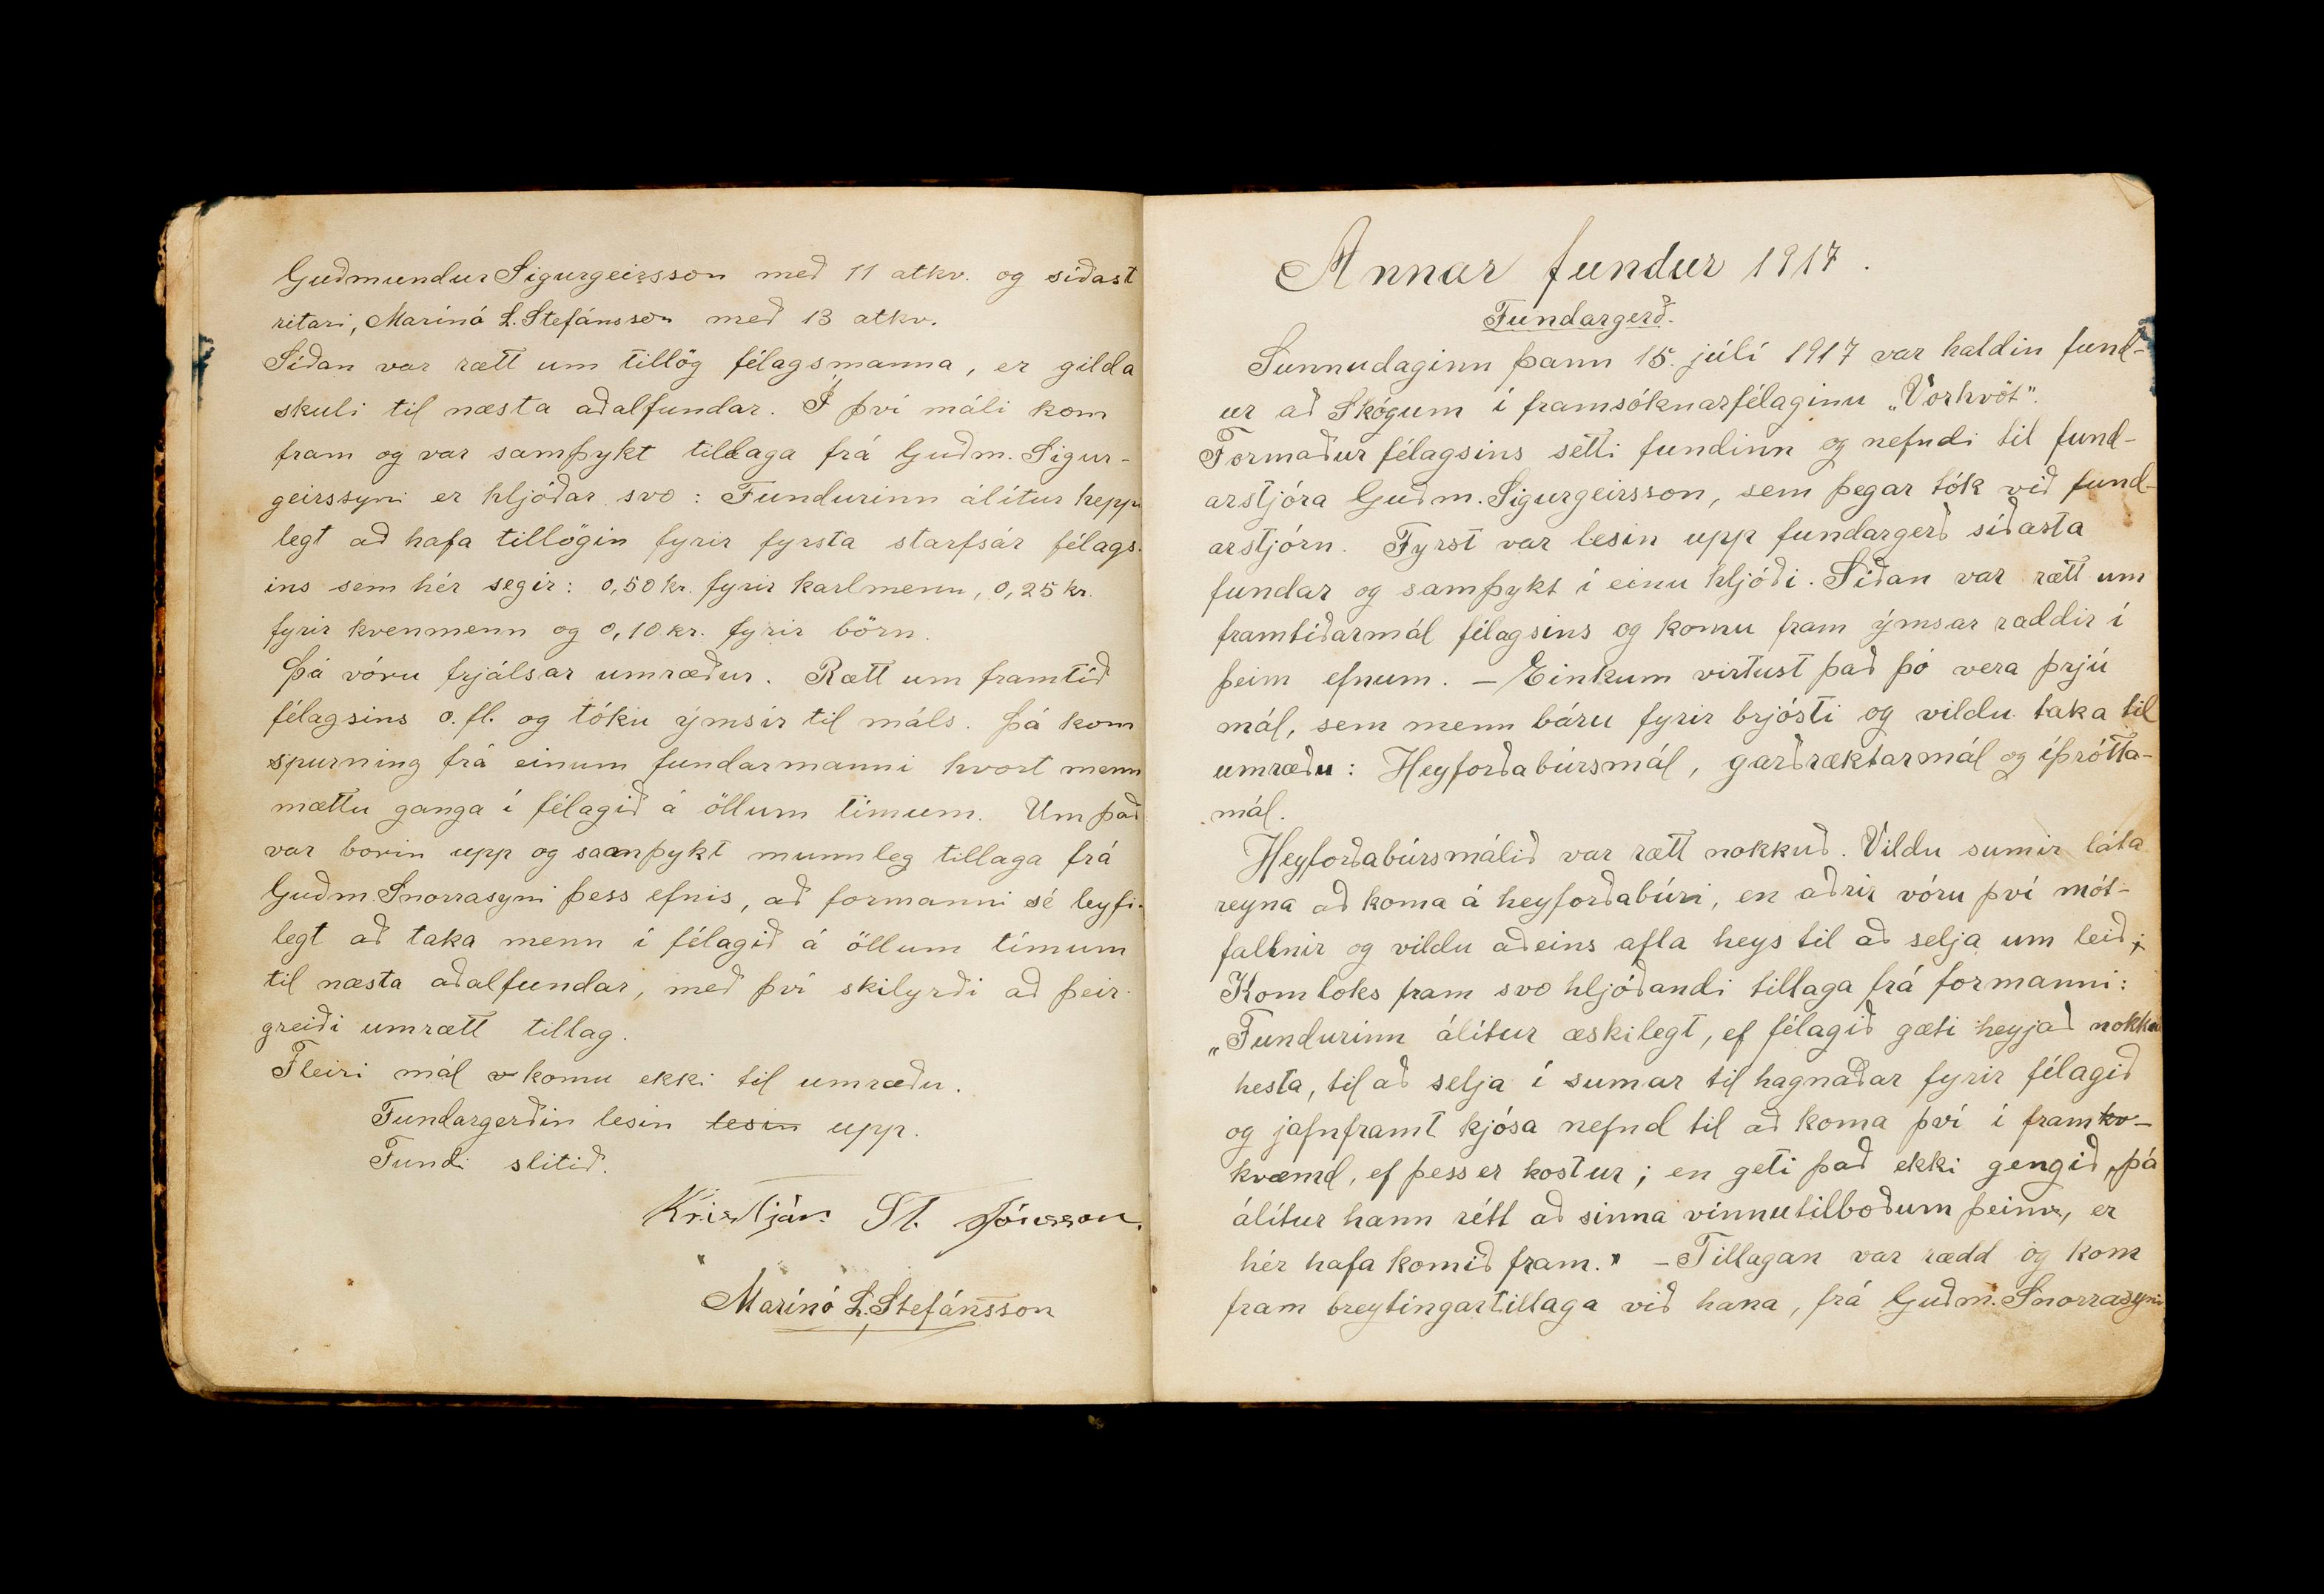 Guðmundur Sigurgeirsson með 11 atkv. og síðast
ritari, Marínó L. Stefánsson með 13 atkv.
Síðan var rætt um tillög félagsmanna, er gilda
skuli til næsta aðalfundar. Í því máli kom
fram og var samþykt tillaga frá Guðm. Sigur-
geirssyni er hljóðar svo: Fundurinn álítur hepp
legt að hafa tillögin fyrir fyrsta starfsár félags-
ins sem hér segir: 0,50 kr. fyrir karlmenn, 0,25 kr.
fyrir kvenmenn og 0,10 kr. fyrir börn.
Þá vóru frjálsar umræður. Rætt um framtíð
félagsins o.fl. og tóku ýmsir til máls. Þá kom
spurning frá einum fundarmanni hvort menn
mættu ganga í félagið á öllum tímum. Um það
var borin upp og samþykt munnleg tillaga frá
Guðm. Snorrasyni þess efnis, að formanni sé leyfi-
legt að taka menn í félagið á öllum tímum
til næsta aðalfundar, með því skilyrði að þeir
greiði umrætt tillag.
Fleiri mál komu ekki til umræðu.
Fundargerðin lesin lesin upp.
Fundi slitið.
Kristján St. Jónsson.
Marínó L. Stefánsson
Annar fundur 1917.
Fundargerð.
Sunnudaginn þann 15. júlí 1917 var haldin fund-
ur að Skógum í framsóknarfélaginu „Vorhvöt".
Formaður félagsins setti fundinn og nefndi til fund-
arstjóra Guðm. Sigurgeirsson, sem þegar tók við fund-
arstjórn. Fyrst var lesin upp fundargerð síðasta
fundar og samþykt í einu hljóði. Síðan var rætt um
framtíðarmál félagsins og komu fram ýmsar raddir í
þeim efnum. – Einkum virtust það þó vera þrjú
mál, sem menn báru fyrir brjósti og vildu taka til
umræðu: Heyforðabúrsmál, garðræktarmál og íþrótta-
mál.
Heyforðabúrsmálið var rætt nokkuð. Vildu sumir láta
reyna að koma á heyforðabúri, en aðrir vóru því mót-
fallnir og vildu aðeins afla heys til að selja um leið;
Kom loks fram svo hljóðandi tillaga frá formanni:
„Fundurinn álítur æskilegt, ef félagið gæti heyjað nokkra
hesta, til að selja í sumar til hagnaðar fyrir félagið
og jafnframt kjósa nefnd til að koma því í framkv-
kvæmd, ef þess er kostur; en geti það ekki gengið, þá
álítur hann rétt að sinna vinnutilboðum þeim, er
hér hafa komið fram." – Tillagan var rædd og kom
fram breytingartillaga við hana, frá Guðm. Snorrasyni